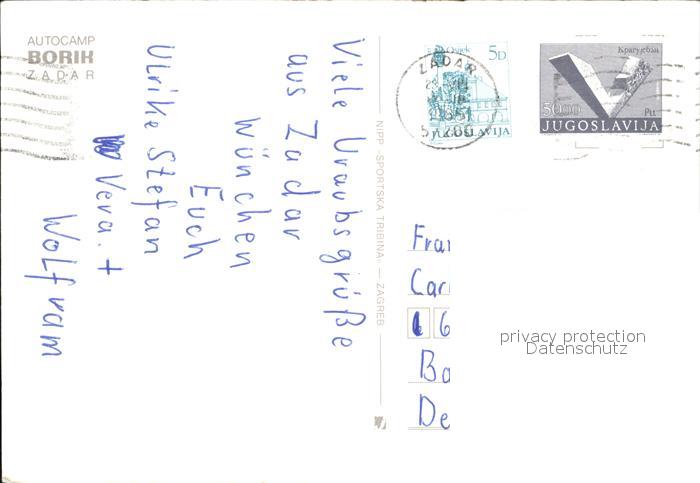 AUTOCAMP
BORIK
ZADAR
Viele Uraubsgrüße
aus Zadar
wünchen
Euch
Ulrike Stefan
Vera. +
Wolfram
NIPP »SPORTSKA TRIBINA« — ZAGREB
Osijek 5D
JUGOSLAVIJA
ZADAR
Крагујевац
50.00 Ptt
JUGOSLAVIJA
Fra
Car
6
Bo
De
privacy protection
Datenschutz